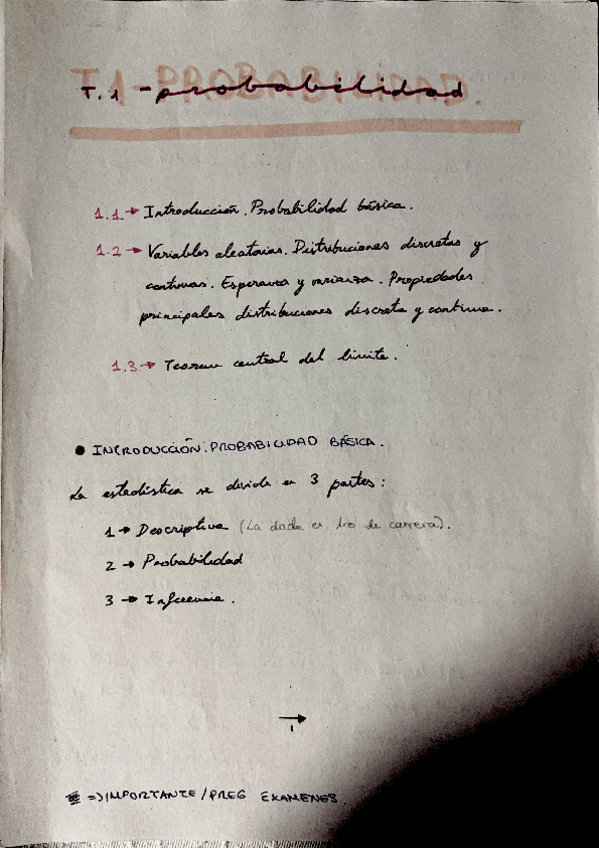 T.1-PROBABILIDAD.
T.1 - probabilidad
1.1→ Introducción. Probabilidad básica.
1.2→ Variables aleatorias. Distribuciones discretas y
continuas. Esperanza y varianza. Propiedades
principales distribuciones discreta y continua.
1.3→ Teorema central del límite.
● INTRODUCCIÓN: PROBABILIDAD BÁSICA.
La estadística se divide en 3 partes:
1 → Descriptiva (La dada en 1ro de carrera).
2 → Probabilidad
3 → Inferencia.
→
1
=> IMPORTANTE/PREG EXAMENES.